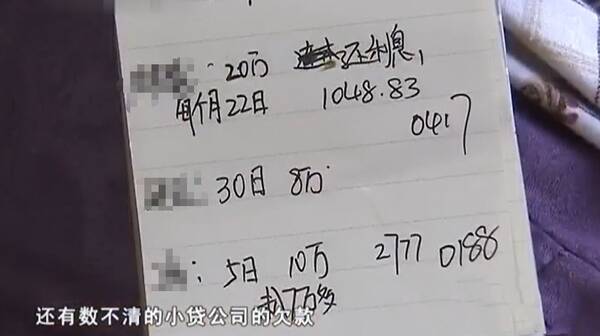 : 20万 还利息,
每个月22日 1048.83
0417
: 30日 8万
: 5日 10万 2777 0188
我7万多
还有数不清的小贷公司的欠款